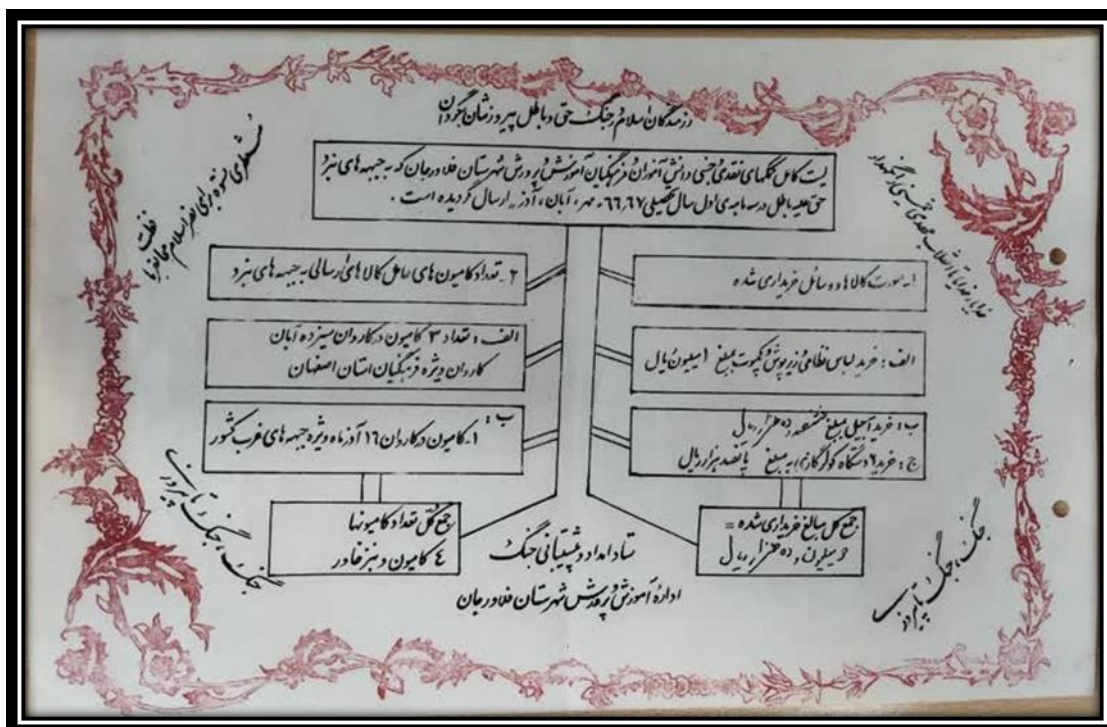 رزمندگان اسلام در جنگ حق و باطل پیروزشان بگردان
لیست کامل کمکهای نقدی و جنسی دانش آموزان و فرهنگیان آموزش و پرورش شهرستان فلاورجان که به جبهه های نبرد
حق علیه باطل در سه ماهه ی اول سال تحصیلی ۶۷-۶۶، مهر، آبان، آذر، ارسال گردیده است.
۱- صورت کالاها و وسائل خریداری شده
الف: خرید لباس نظامی و زیرپوش و کمپوت بمبلغ ۱ میلیون ریال
ب: خرید آجیل بمبلغ ده هزار ریال
ج: خرید ۲ دستگاه کولر گازی به مبلغ پانصد هزار ریال
جمع کل مبالغ خریداری شده =
میلیون و ده هزار ریال
۲- تعداد کامیون های حامل کالاهای ارسالی به جبهه های نبرد
الف: تعداد ۳ کامیون در کاروان سیزده آبان
کاروان ویژه فرهنگیان استان اصفهان
ب:
۱- کامیون در کاروان ۱۶ آذرماه ویژه جبهه های غرب کشور
جمع کل تعداد کامیونها
٤ کامیون و خاور
ستاد امداد و پشتیبانی جنگ
اداره آموزش و پرورش شهرستان فلاورجان
خدایا خدایا تا انقلاب مهدی خمینی را نگهدار
جنگ، جنگ تا پیروزی
جنگ، جنگ تا پیروزی